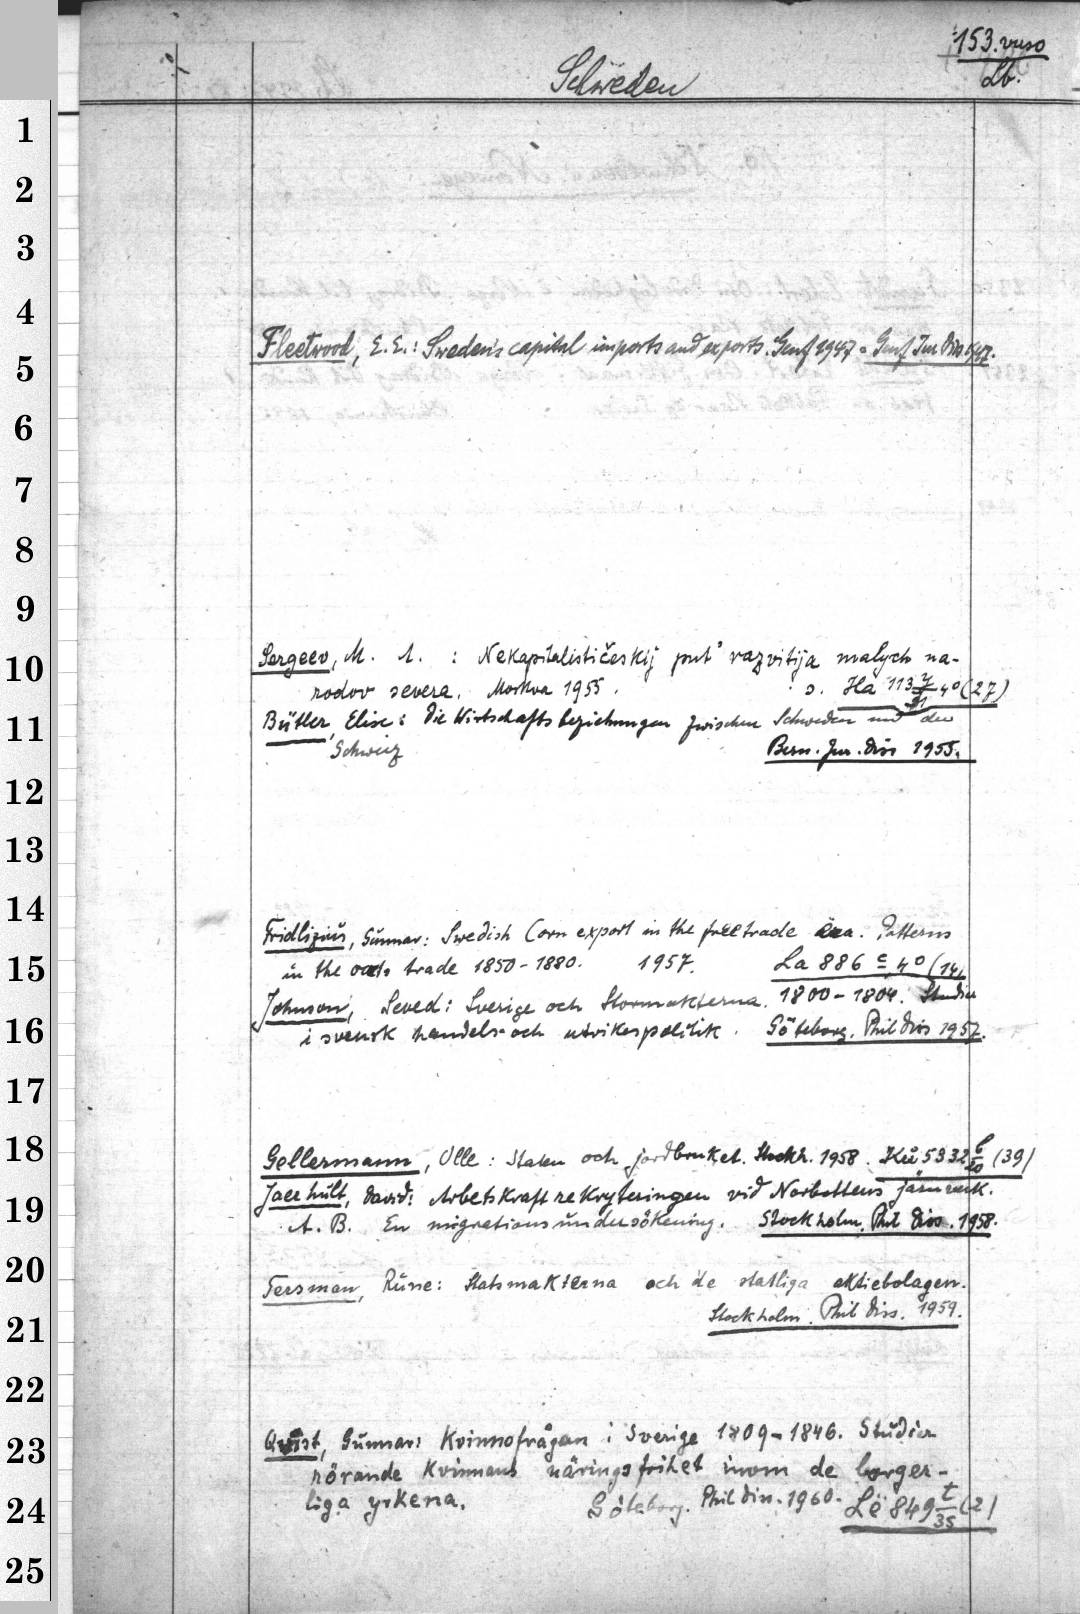 153. verso
Lb.
Schweden
1
2
3
4
Fleetwood, E.E.: Sweden's capital imports and exports. Genf 1947 = Genf Jur. Diss. 1947.
5
6
7
8
9
Sergeev, M. A. : Nekapitalističeskij put' razvitija malych na-
10
rodov severa. Moskva 1955. s. Ha 113 4° (27)
Bütler, Elise: Die Wirtschaftsbeziehungen zwischen Schweden und der
11
Schweiz Bern. Jur. Diss 1955.
12
13
14
Fridlizius, Gunnar: Swedish Corn export in the free trade era. Patterns
15
in the oats trade 1850-1880. 1957. La 886 c 4° (14)
Johnson, Seved: Sverige och Stormakterna. 1800-1804. Studier
16
i svensk handels- och utrikespolitik. Göteborg. Phil Diss 1957.
17
18
Gellermann, Olle: Staten och jordbruket. Stockh. 1958. Kü 5332 (39)
Jaerhult, David: Arbetskraftrekryteringen vid Norbottens järnverk.
19
A. B. En migrationsundersökening. Stockholm. Phil Diss. 1958.
20
Tersman, Rune: Statsmakterna och de statliga aktiebolagen.
21
Stockholm. Phil Diss. 1959.
22
Qvist, Gunnar: Kvinnofrågan i Sverige 1809-1846. Studier
23
rörande Kvinnans näringsfrihet inom de borger-
24
liga yrkena. Göteborg. Phil Diss. 1960. Lë 849 t/35 (2)
25